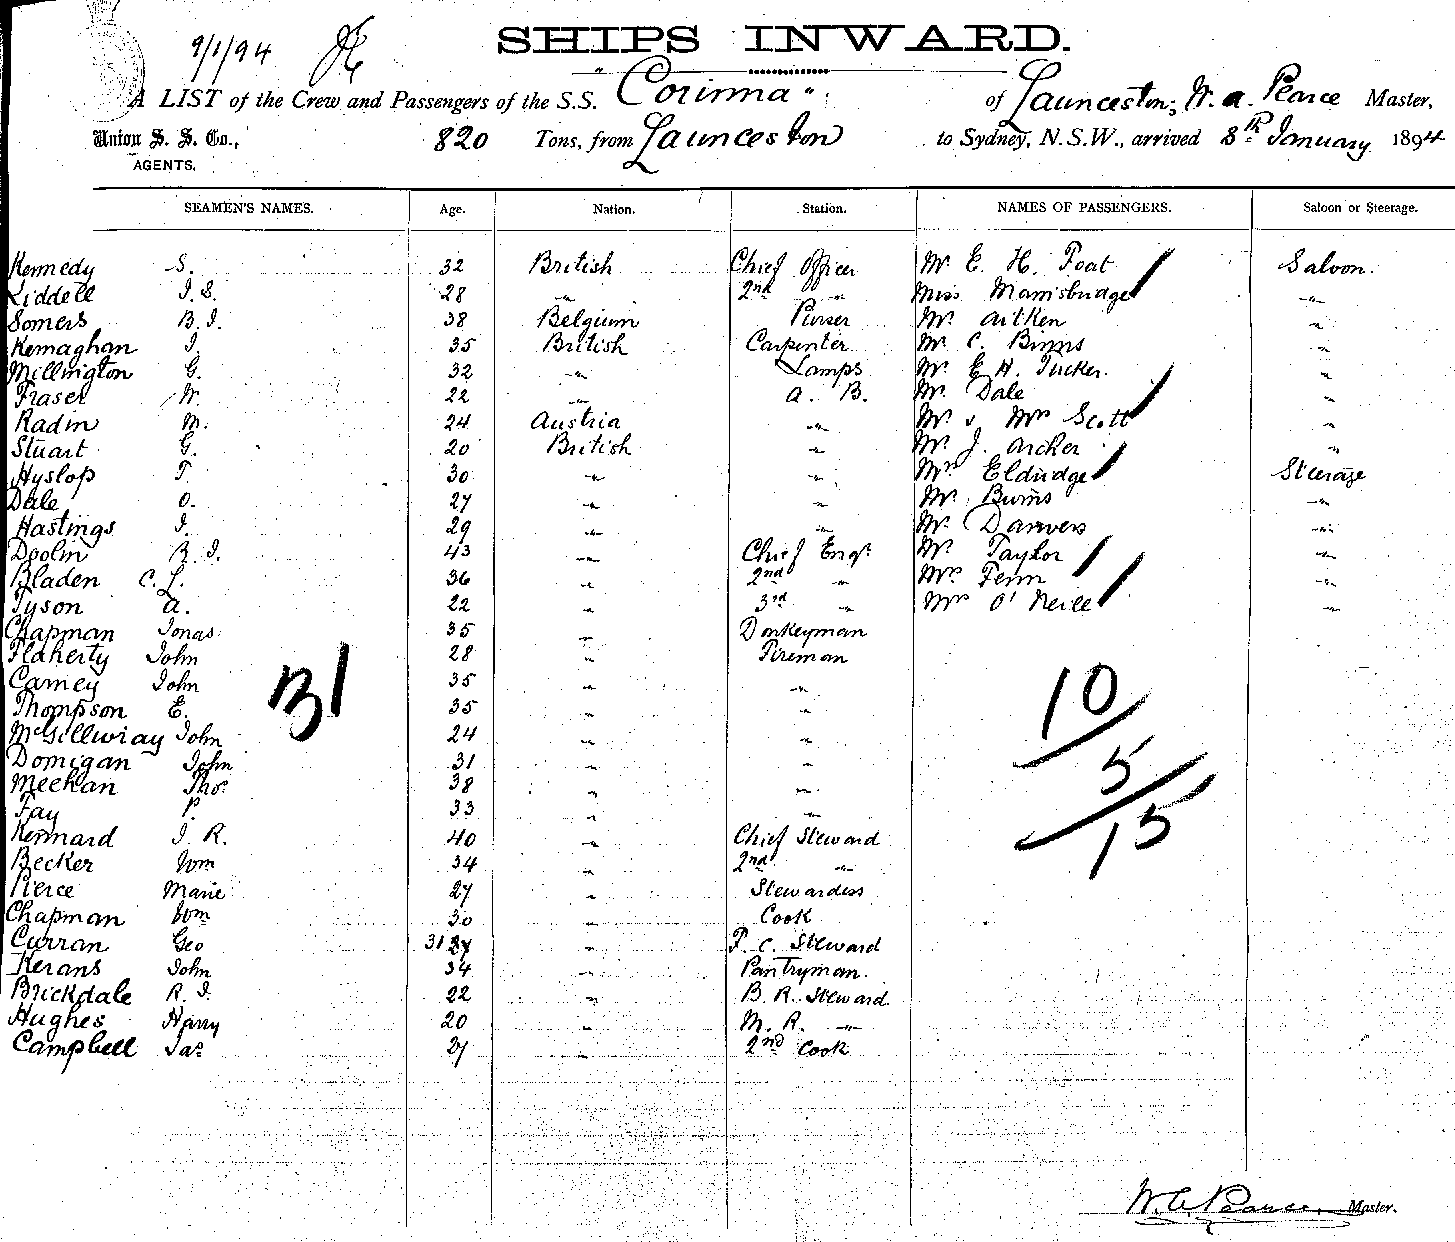 9/1/94
SHIPS INWARD.
A LIST of the Crew and Passengers of the S.S. "Corinna" of Launceston, W. A. Pearce Master,
Union S. S. Co., AGENTS. 820 Tons, from Launceston to Sydney, N.S.W., arrived 8th January 1894
SEAMEN'S NAMES. Age. Nation. Station. NAMES OF PASSENGERS. Saloon or Steerage.
Kennedy S. 32 British Chief Officer Mr E. H. Foat Saloon.
Liddell J. S. 28 " 2nd " Miss Marrisbridge "
Somers B. J. 38 Belgium Purser Mr Aitken "
Kernaghan J. 35 British Carpenter Mr C. Binns "
Millington G. 32 " Lamps Mr E. H. Tucker. "
Fraser W. 22 " A. B. Mr Dale "
Radin M. 24 Austria " Mr & Mrs Scott "
Stuart G. 20 British " Mr J. Archer "
Hyslop T. 30 " " Mrs Eldridge Steerage
Dale O. 27 " " Mr Burns "
Hastings J. 29 " " Mr Danvers "
Doolin R. J. 43 " Chief Engr Mr Taylor "
Bladen C. J. 36 " 2nd " Mrs Fenn "
Tyson A. 22 " 3rd " Mrs O'Neill "
Chapman Jonas 35 " Donkeyman
Flaherty John 28 " Fireman
Carney John 35 " "
Thompson E. 35 " "
McGillivray John 24 " "
Domigan John 31 " "
Meehan Thos 38 " "
Fay P. 33 " "
Kennard J. R. 40 " Chief Steward
Becker Wm 34 " 2nd "
Pierce Marie 27 " Stewardess
Chapman Wm 30 " Cook
Curran Geo 31 " F. C. Steward
Kerans John 34 " Pantryman.
Brickdale R. J. 22 " B. R. Steward
Hughes Harry 20 " M. R. "
Campbell Jas 27 " 2nd Cook
31
10
5
15
W. A. Pearce. Master.